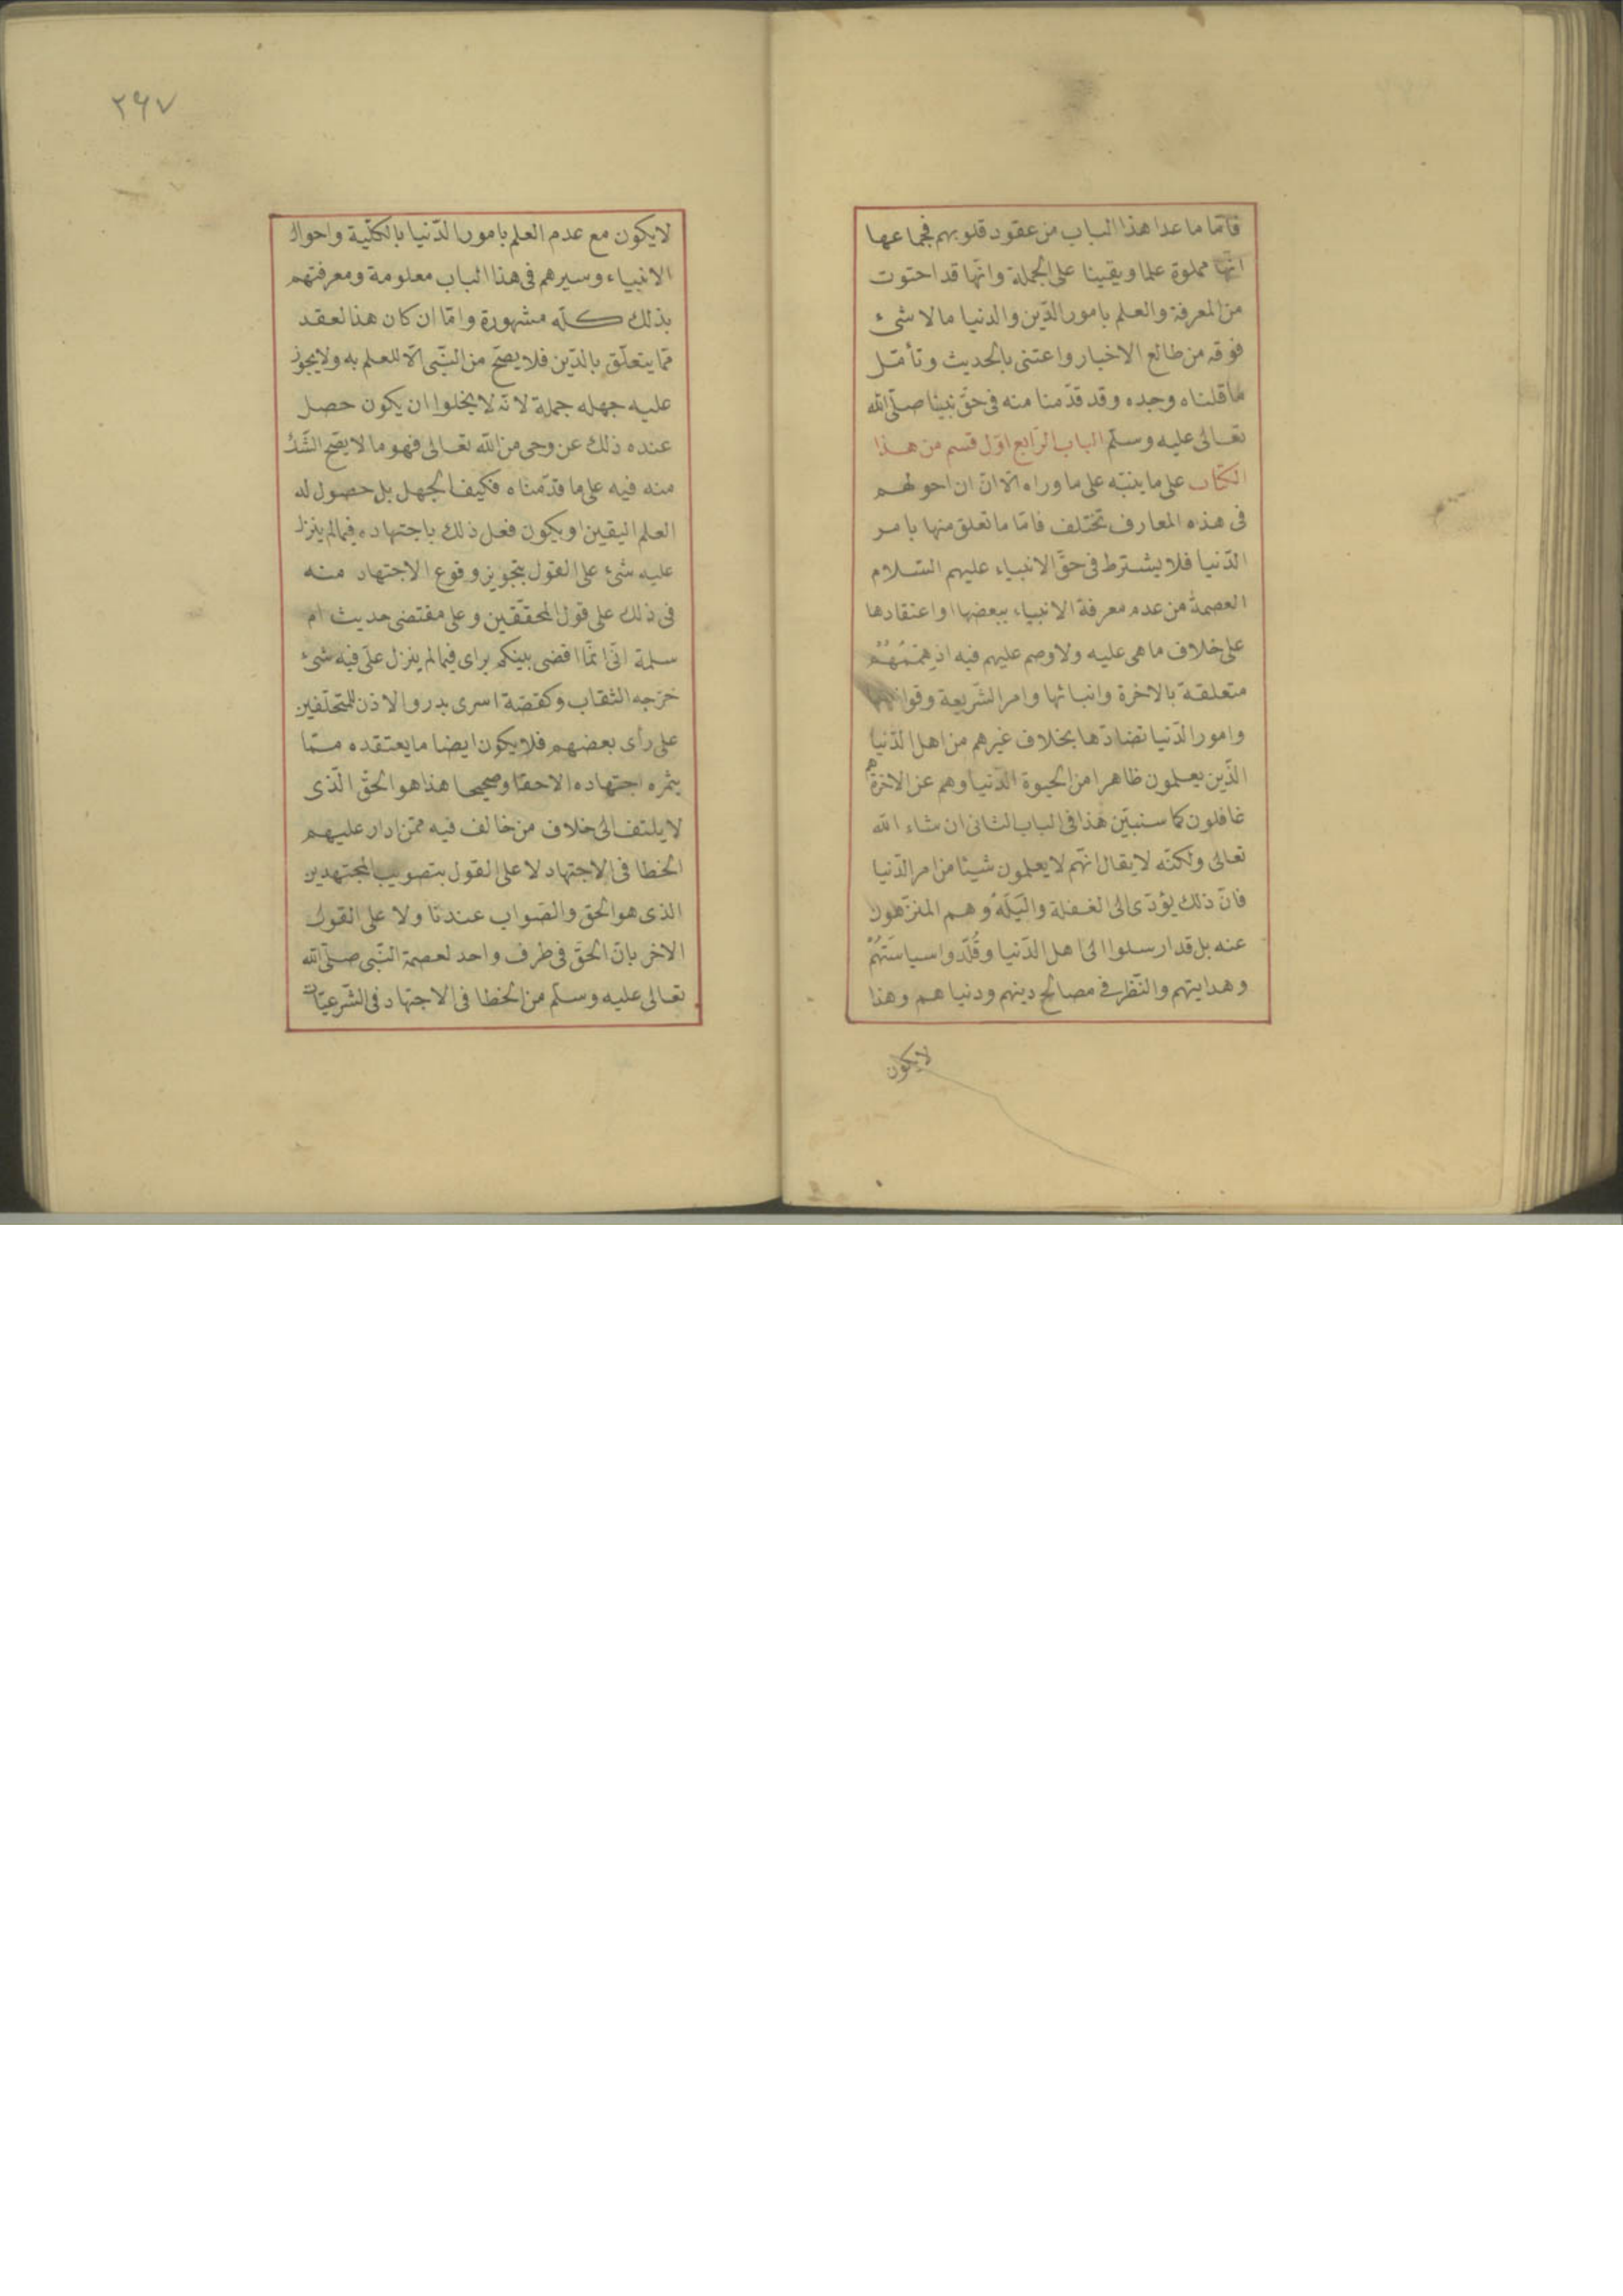 فامّا ما عدا هذا الباب من عقود قلوبهم فجماعها
انّها مملوة علما ويقينا على الجملة وانّها قد احتوت
من المعرفة والعلم بامور الدّين والدنيا ما لا شئ
فوقه من طالع الاخبار واعتنى بالحديث وتأمّل
ما قلناه وجده وقد قدّمنا منه فى حقّ نبيّنا صلّى الله
تعالى عليه وسلّم الباب الرّابع اوّل قسم من هذا
الكتاب على ما ينبّه على ما وراه الّا انّ احولهم
فى هذه المعارف تختلف فامّا ما تعلق منها بامر
الدّنيا فلا يشترط فى حقّ الانبياء عليهم السّلام
العصمة من عدم معرفة الانبياء ببعضها او اعتقادها
على خلاف ما هى عليه ولا وصم عليهم فيه اذ هممهم
متعلقة بالاخرة وانبائها وامر الشّريعة وقوانينها
وامور الدّنيا تضادّها بخلاف غيرهم من اهل الدّنيا
الّذين يعلمون ظاهرا من الحيوة الدّنيا وهم عن الاخرة هم
غافلون كما سنبيّن هذا فى الباب الثانى ان شاء الله
تعالى ولكنّه لا يقال انّهم لا يعلمون شيئا من امر الدّنيا
فانّ ذلك يؤدّى الى الغفلة والبَلَهُ وهم المنزّهون
عنه بل قد ارسلوا الى اهل الدّنيا وقُلّدوا سياستهم
وهدايتهم والنّظر فى مصالح دينهم ودنياهم وهذا
لا يكون
٢٦٧
لا يكون مع عدم العلم بامور الدّنيا بالكلّية واحوال
الانبياء وسيرهم فى هذا الباب معلومة ومعرفتهم
بذلك كلّه مشهورة وامّا ان كان هذا لعقد
ممّا يتعلّق بالدّين فلا يصحّ من النّبى الّا العلم به ولا يجوز
عليه جهله جملة لانّه لا يخلوا ان يكون حصل
عنده ذلك عن وحى من الله تعالى فهو ما لا يصحّ الشّك
منه فيه على ما قدّمناه فكيف الجهل بل حصول له
العلم اليقين او يكون فعل ذلك باجتهاده فيما لم ينزل
عليه شئ على القول بتجويز وقوع الاجتهاد منه
فى ذلك على قول المحقّقين وعلى مقتضى حديث ام
سلمة انّى انّما اقضى بينكم براى فيما لم ينزل علىّ فيه شئ
خرّجه الثقاب وكقصّة اسرى بدر والاذن للمتخلّفين
على رأى بعضهم فلا يكون ايضا ما يعتقده ممّا
يثمره اجتهاده الاحقا وصحيحا هذا هو الحقّ الّذى
لا يلتف الى خلاف من خالف فيه ممّن ادار عليهم
الخطا فى الاجتهاد لا على القول بتصويب المجتهدين
الذى هو الحق والصّواب عندنا ولا على القول
الاخر بانّ الحقّ فى طرف واحد لعصمة النّبى صلّى الله
تعالى عليه وسلّم من الخطا فى الاجتهاد فى الشّرعيّات